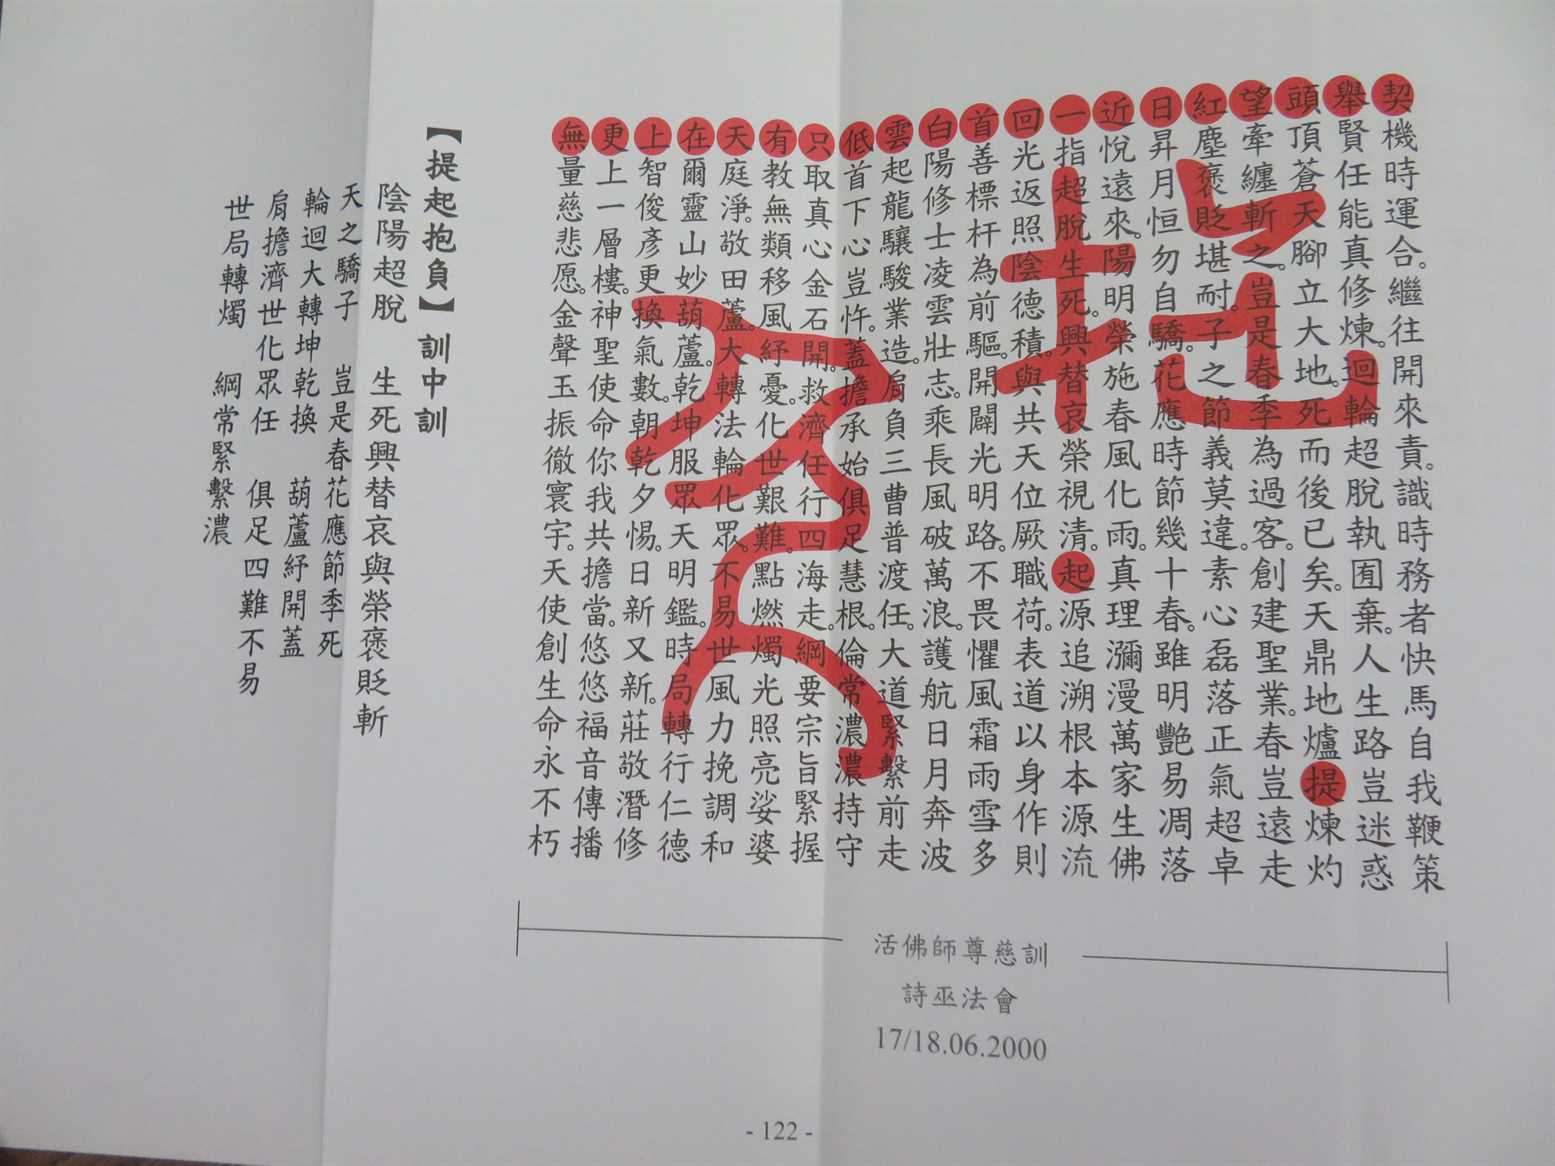 契機時運合。繼往開來責。識時務者快馬自我鞭策
舉賢任能真修煉。迴輪超脫執囿棄。人生路豈迷惑
頭頂蒼天腳立大地。死而後已矣。天鼎地爐提煉灼
望牽纏斬之。豈是春季為過客。創建聖業。春豈遠走
紅塵褒貶堪耐。子之節義莫違。素心磊落正氣超卓
日昇月恒勿自驕。花應時節幾十春。雖明艷易凋落
近悅遠來。陽明榮施春風化雨。真理瀰漫萬家生佛
一指超脫生死。興替哀榮視清。起源追溯根本源流
回光返照陰德積。與共天位厥職荷。表道以身作則
首善標杆為前驅。開闢光明路。不畏懼風霜雨雪多
白陽修士凌雲壯志。乘長風破萬浪。護航日月奔波
雲起龍驤駿業造。肩負三曹普渡任。大道緊繫前走
低首下心豈忤。蓋擔承始俱足慧根。倫常濃濃持守
只取真心金石開。救濟任行四海走。綱要宗旨緊握
有教無類移風紓憂。化世艱難。點燃燭光照亮娑婆
天庭淨。敬田蘆。大轉法輪化眾。不易世風力挽調和
在爾靈山妙葫蘆。乾坤服眾天明鑑。時局轉行仁德
上智俊彥更換氣數。朝乾夕惕。日新又新。莊敬潛修
更上一層樓。神聖使命你我共擔當。悠悠福音傳播
無量慈悲愿。金聲玉振徹寰宇。天使創生命永不朽
【提起抱負】訓中訓
陰陽超脫 生死興替哀與榮褒貶斬
天之驕子 豈是春花應節季死
輪迴大轉坤乾換 葫蘆紓開蓋
肩擔濟世化眾任 俱足四難不易
世局轉燭 綱常緊繫濃
活佛師尊慈訓
詩巫法會
17/18.06.2000
- 122 -